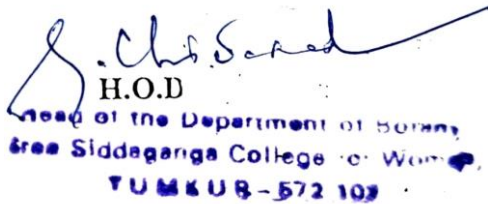 H.O.D
Head of the Department of Botany
Sree Siddaganga College for Women,
TUMKUR-572 102